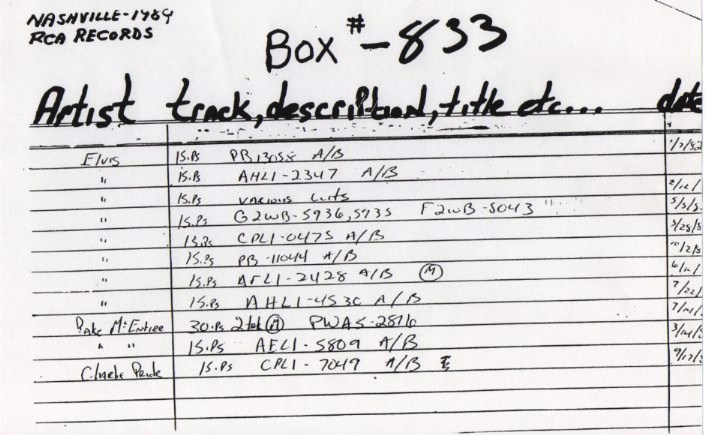 NASHVILLE-1989
RCA RECORDS
BOX # - 833
Artist track, description, title etc... date
Elvis 15.Ps PB 13058 A/B
" 15.Ps AHL1-2347 A/B
" 15.Ps various cuts
" 15.Ps G2WB-5936, 5935 F2WB-5043
" 15.Ps CPL1-0475 A/B
" 15.Ps PB-11044 A/B
" 15.Ps AFL1-2428 A/B (M)
" 15.Ps AHL1-4530 A/B
Pake McEntire 30.Ps 2 (M) PWAS-2816
" " 15.Ps AEL1-5809 A/B
Pride 15.Ps CPL1-7049 A/B